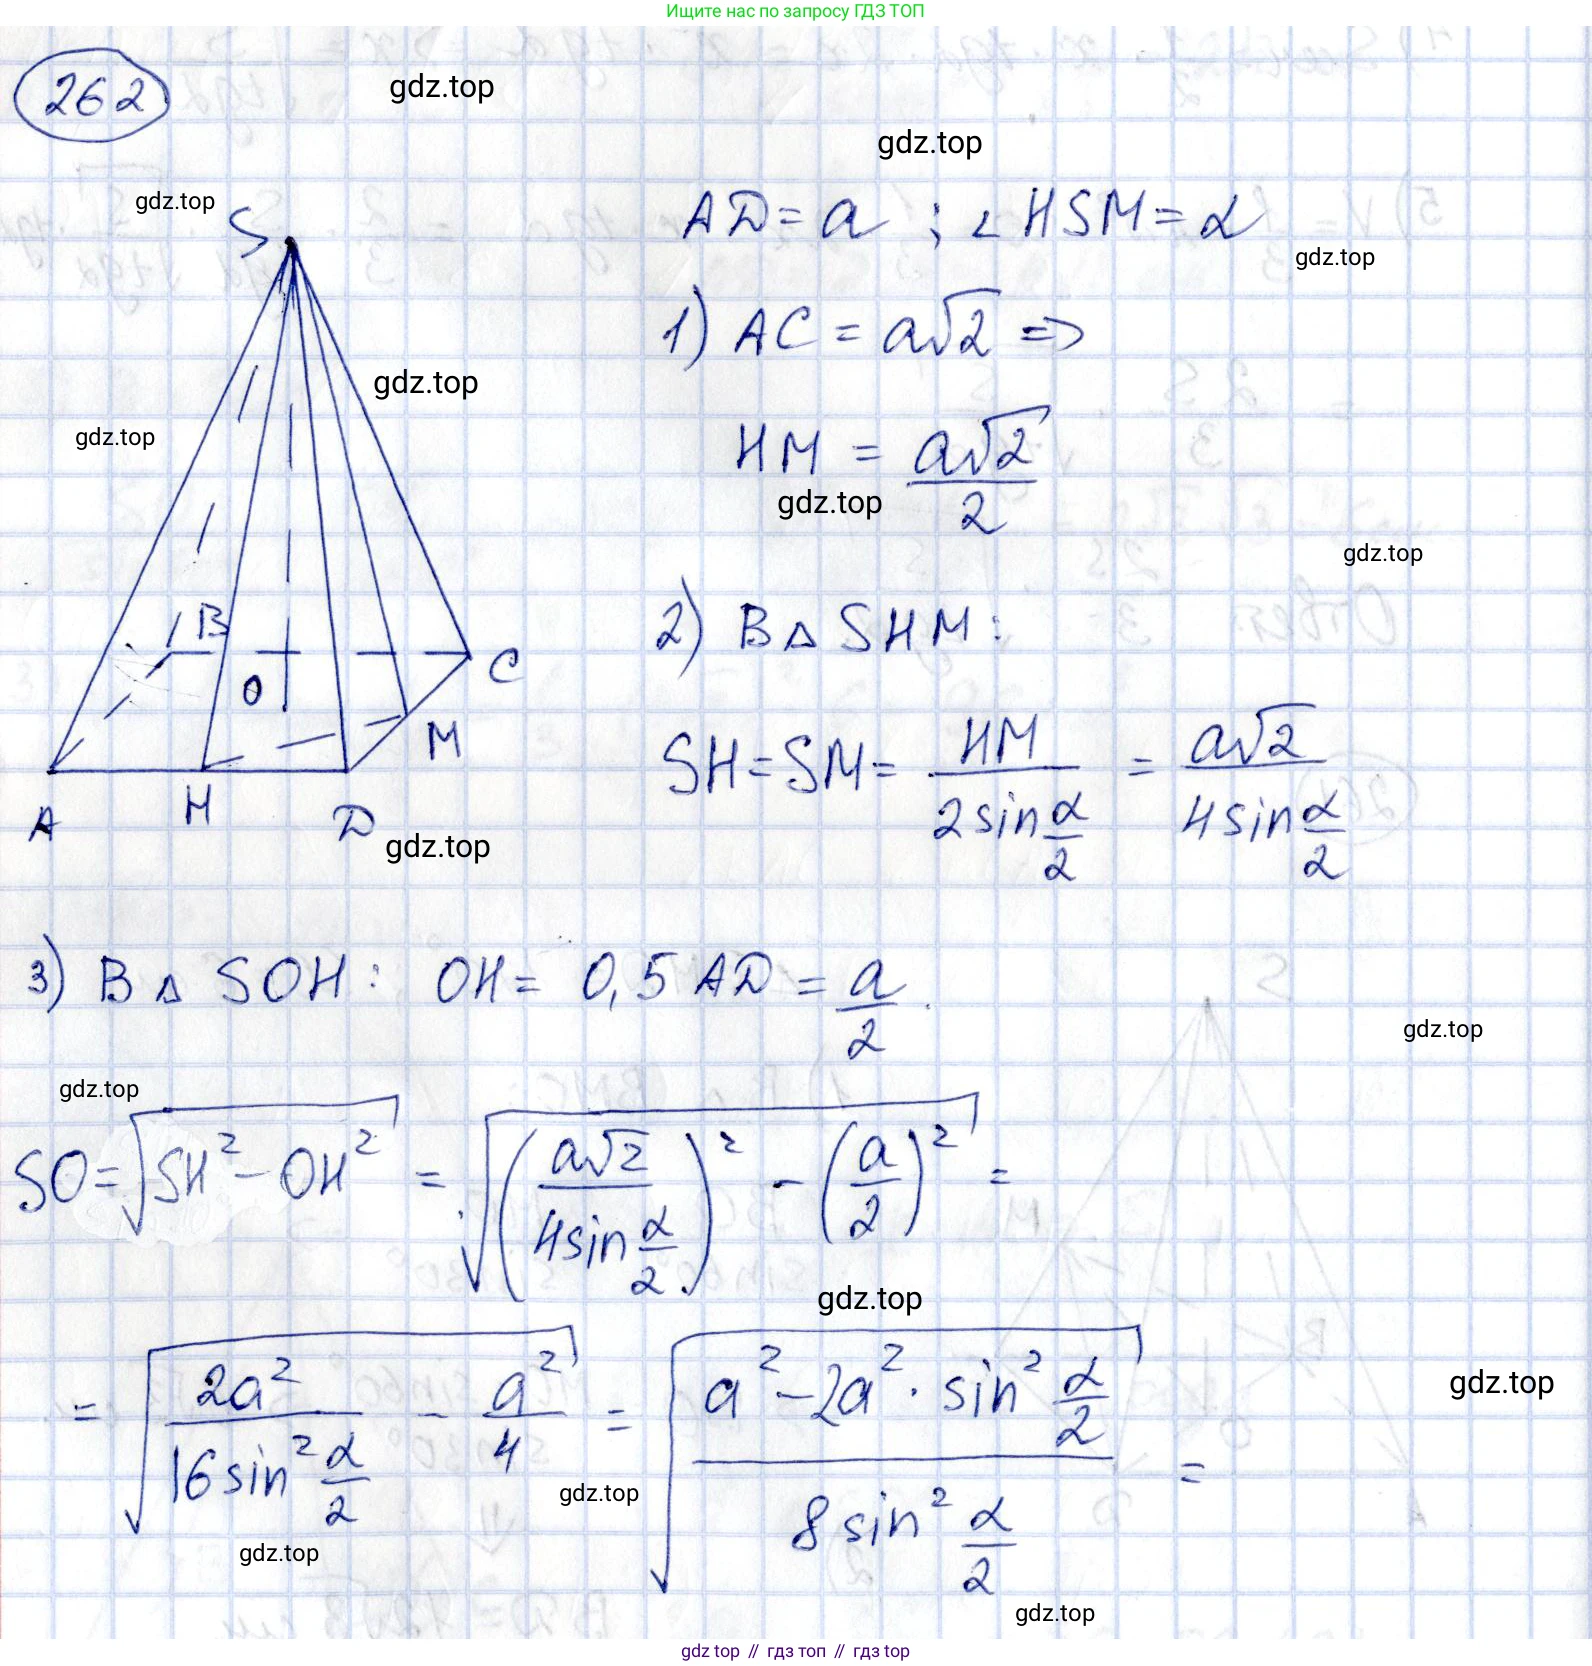 Ищите нас по запросу ГДЗ ТОП
262
gdz.top
gdz.top
gdz.top
S
AD = a ; ∠HSM = α
gdz.top
1) AC = a√2 =>
gdz.top
gdz.top
HM = a√2/2
gdz.top
gdz.top
2) В △ SHM:
B
O
C
M
A H D
SH = SM = HM/(2 sin α/2) = a√2/(4 sin α/2)
gdz.top
3) В △ SOH: OH = 0,5 AD = a/2.
gdz.top
gdz.top
SO = √(SH² - OH²) = √((a√2/(4 sin α/2))² - (a/2)²) =
gdz.top
= √(2a²/(16 sin² α/2) - a²/4) = √((a² - 2a² · sin² α/2)/(8 sin² α/2)) =
gdz.top
gdz.top
gdz.top
gdz.top
gdz top // гдз топ // gdz top